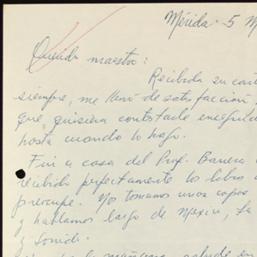 Mérida - 5 M
Querido maestro:
Recibida su carta
siempre, me llenó de satisfacción
que quisiera contestarle
hasta cuando lo hago.
Fui a casa del Prof. Barrera
recibido perfectamente los libros
preocupe. Nos tomamos unas copas
y hablamos largo de Mexico, la
y